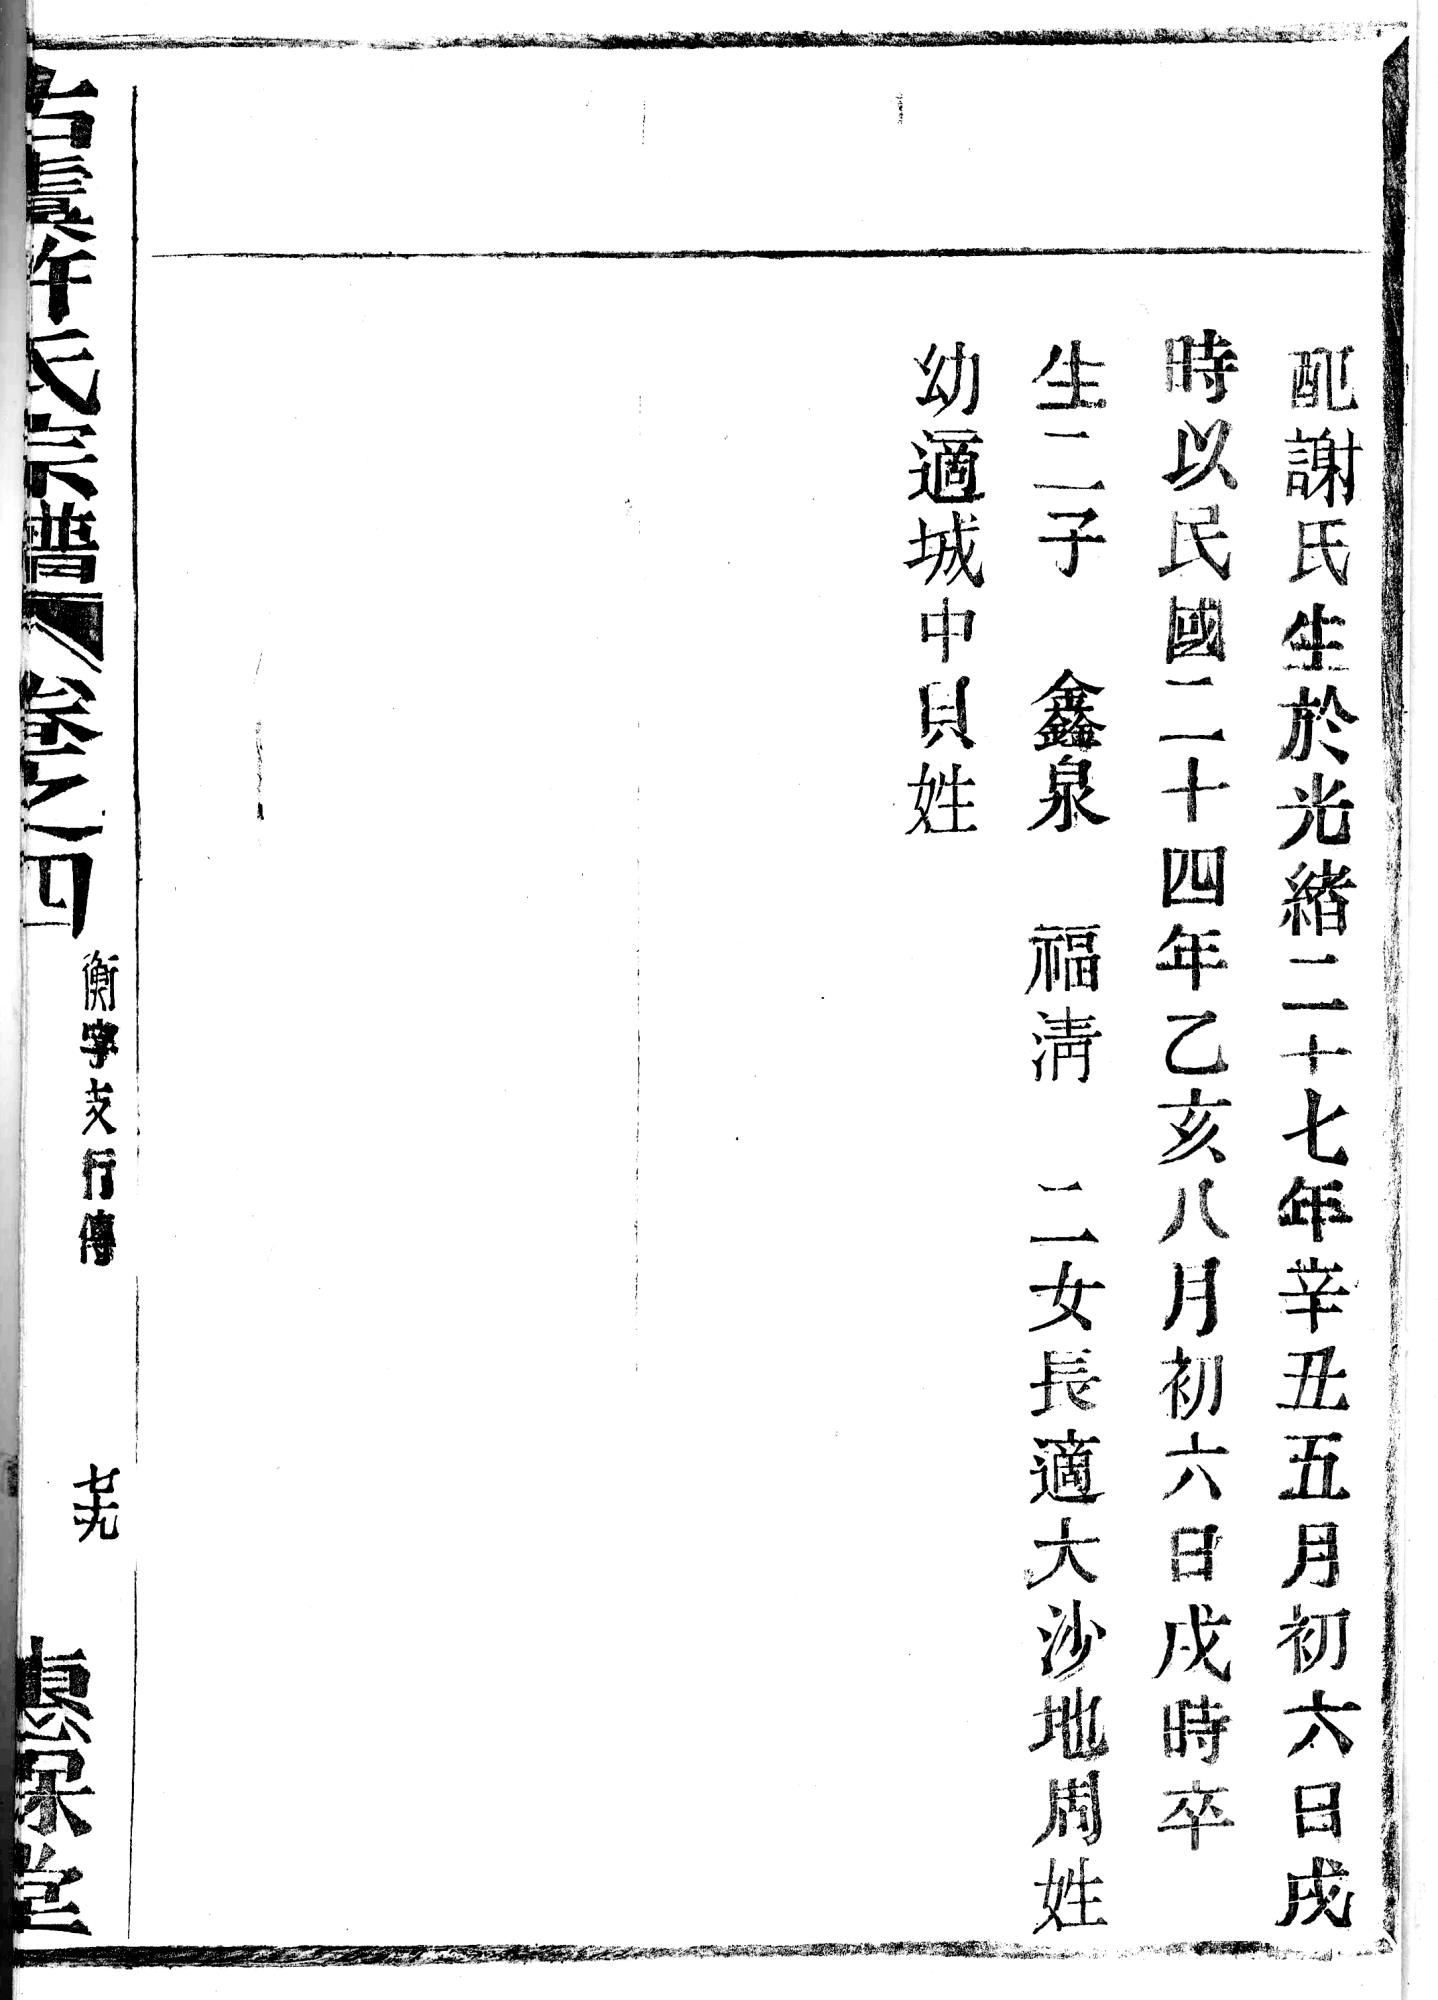 配謝氏生於光緒二十七年辛丑五月初六日戌
時以民國二十四年乙亥八月初六日戌時卒
生二子 鑫泉 福淸 二女長適大沙地周姓
幼適城中貝姓
古虞許氏宗譜 卷之四 衡字支行傳 七十九 惠保堂